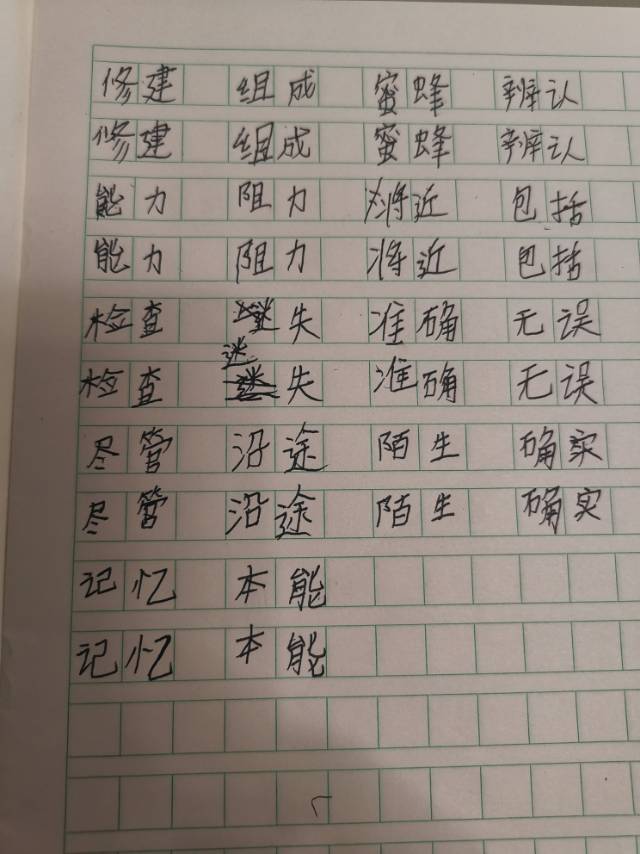 修建 组成 蜜蜂 辨认
修建 组成 蜜蜂 辨认
能力 阻力 将近 包括
能力 阻力 将近 包括
检查 失 准确 无误
迷
检查 失 准确 无误
尽管 沿途 陌生 确实
尽管 沿途 陌生 确实
记忆 本能
记忆 本能